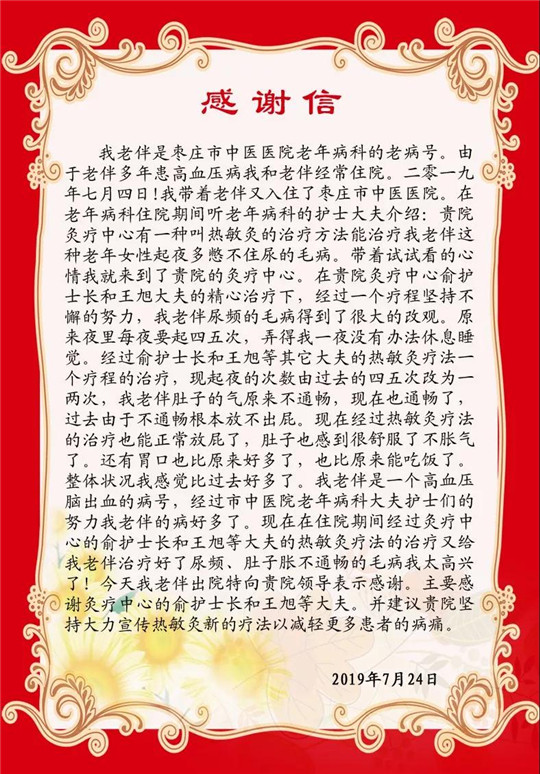 感谢信
我老伴是枣庄市中医医院老年病科的老病号。由
于老伴多年患高血压病我和老伴经常住院。二零一九
年七月四日!我带着老伴又入住了枣庄市中医医院。在
老年病科住院期间听老年病科的护士大夫介绍：贵院
灸疗中心有一种叫热敏灸的治疗方法能治疗我老伴这
种老年女性起夜多憋不住尿的毛病。带着试试看的心
情我就来到了贵院的灸疗中心。在贵院灸疗中心俞护
士长和王旭大夫的精心治疗下，经过一个疗程坚持不
懈的努力，我老伴尿频的毛病得到了很大的改观。原
来夜里每夜要起四五次，弄得我一夜没有办法休息睡
觉。经过俞护士长和王旭等其它大夫的热敏灸疗法一
个疗程的治疗，现起夜的次数由过去的四五次改为一
两次，我老伴肚子的气原来不通畅，现在也通畅了，
过去由于不通畅根本放不出屁。现在经过热敏灸疗法
的治疗也能正常放屁了，肚子也感到很舒服了不胀气
了。还有胃口也比原来好多了，也比原来能吃饭了。
整体状况我感觉比过去好多了。我老伴是一个高血压
脑出血的病号，经过市中医院老年病科大夫护士们的
努力我老伴的病好多了。现在在住院期间经过灸疗中
心的俞护士长和王旭等大夫的热敏灸疗法的治疗又给
我老伴治疗好了尿频、肚子胀不通畅的毛病我太高兴
了！今天我老伴出院特向贵院领导表示感谢。主要感
谢灸疗中心的俞护士长和王旭等大夫。并建议贵院坚
持大力宣传热敏灸新的疗法以减轻更多患者的病痛。
2019年7月24日